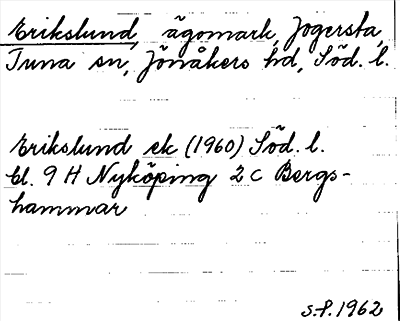 Erikslund, ägomark, Jogersta,
Tuna sn, Jönåkers hd, Söd. l.
Erikslund ek (1960) Söd. l.
bl. 9 H Nyköping 2 c Bergs-
hammar
s.f. 1962